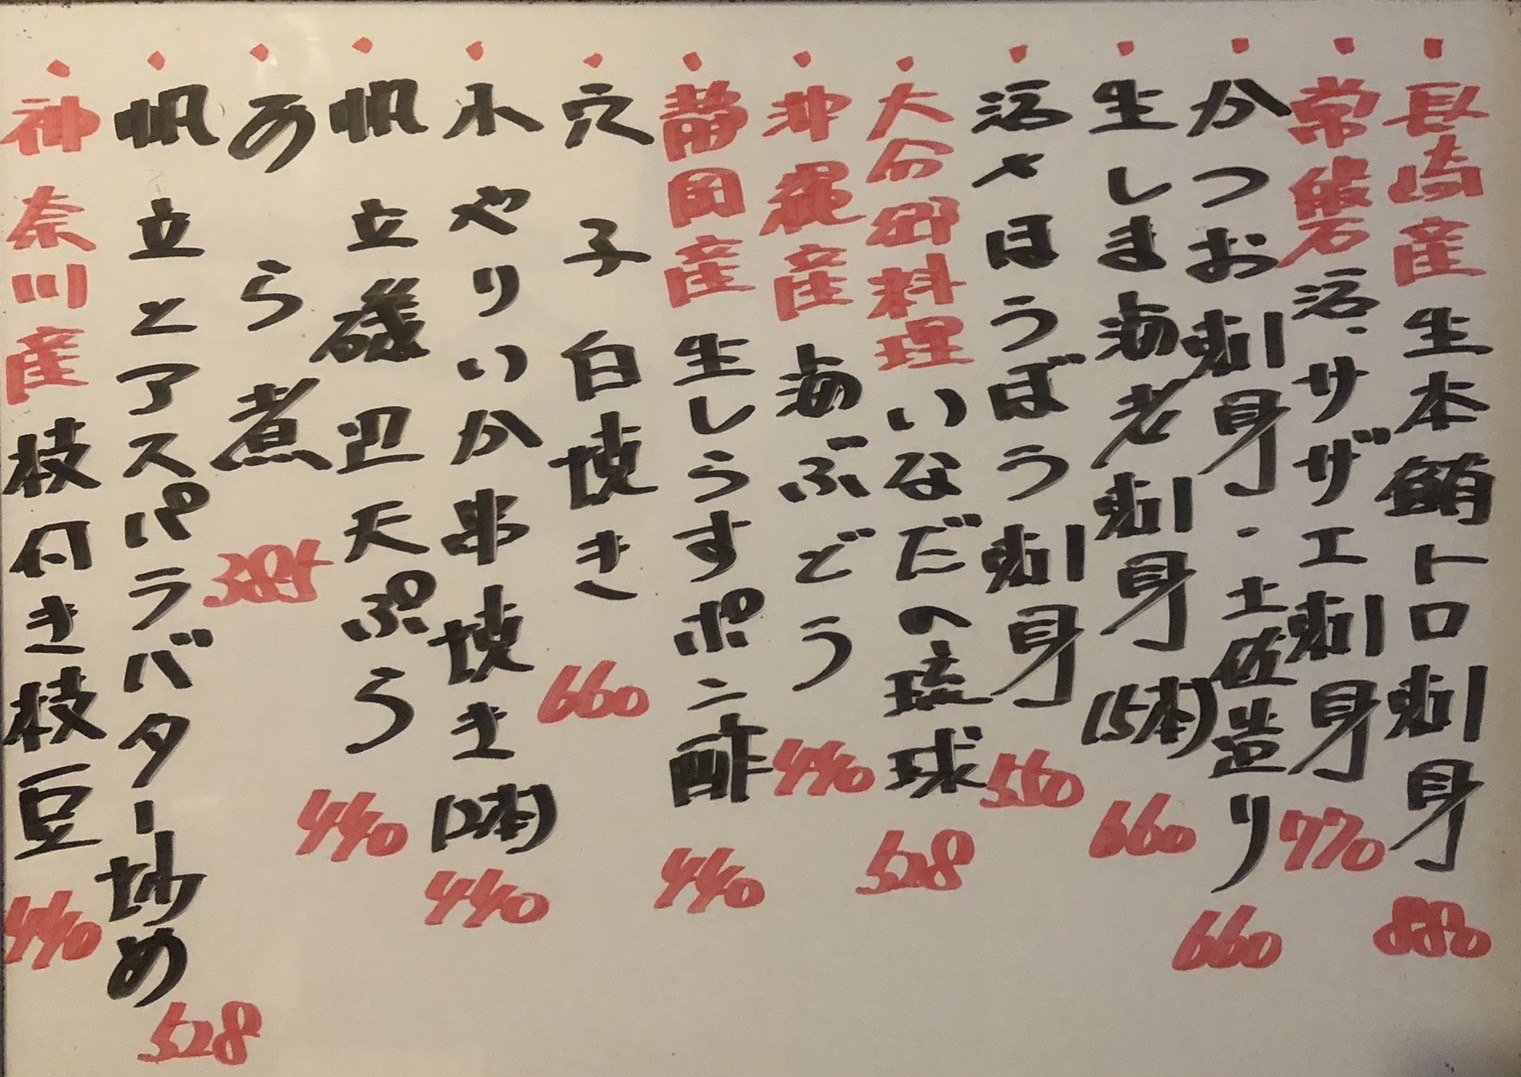 長崎産 生本鮪トロ刺身 880
常磐 活、サザエ刺身 770
かつお刺身・土佐造り 660
生しま海老刺身(5本) 660
活〆ほうぼう刺身 550
大分郷料理 いなだの琉球 528
沖縄産 海ぶどう 440
静岡産 生しらすポン酢 440
穴子白焼き 660
小やりいか串焼き(2本) 440
帆立磯辺天ぷら 440
あら煮 385
帆立とアスパラバター炒め 528
神奈川産 枝付き枝豆 440